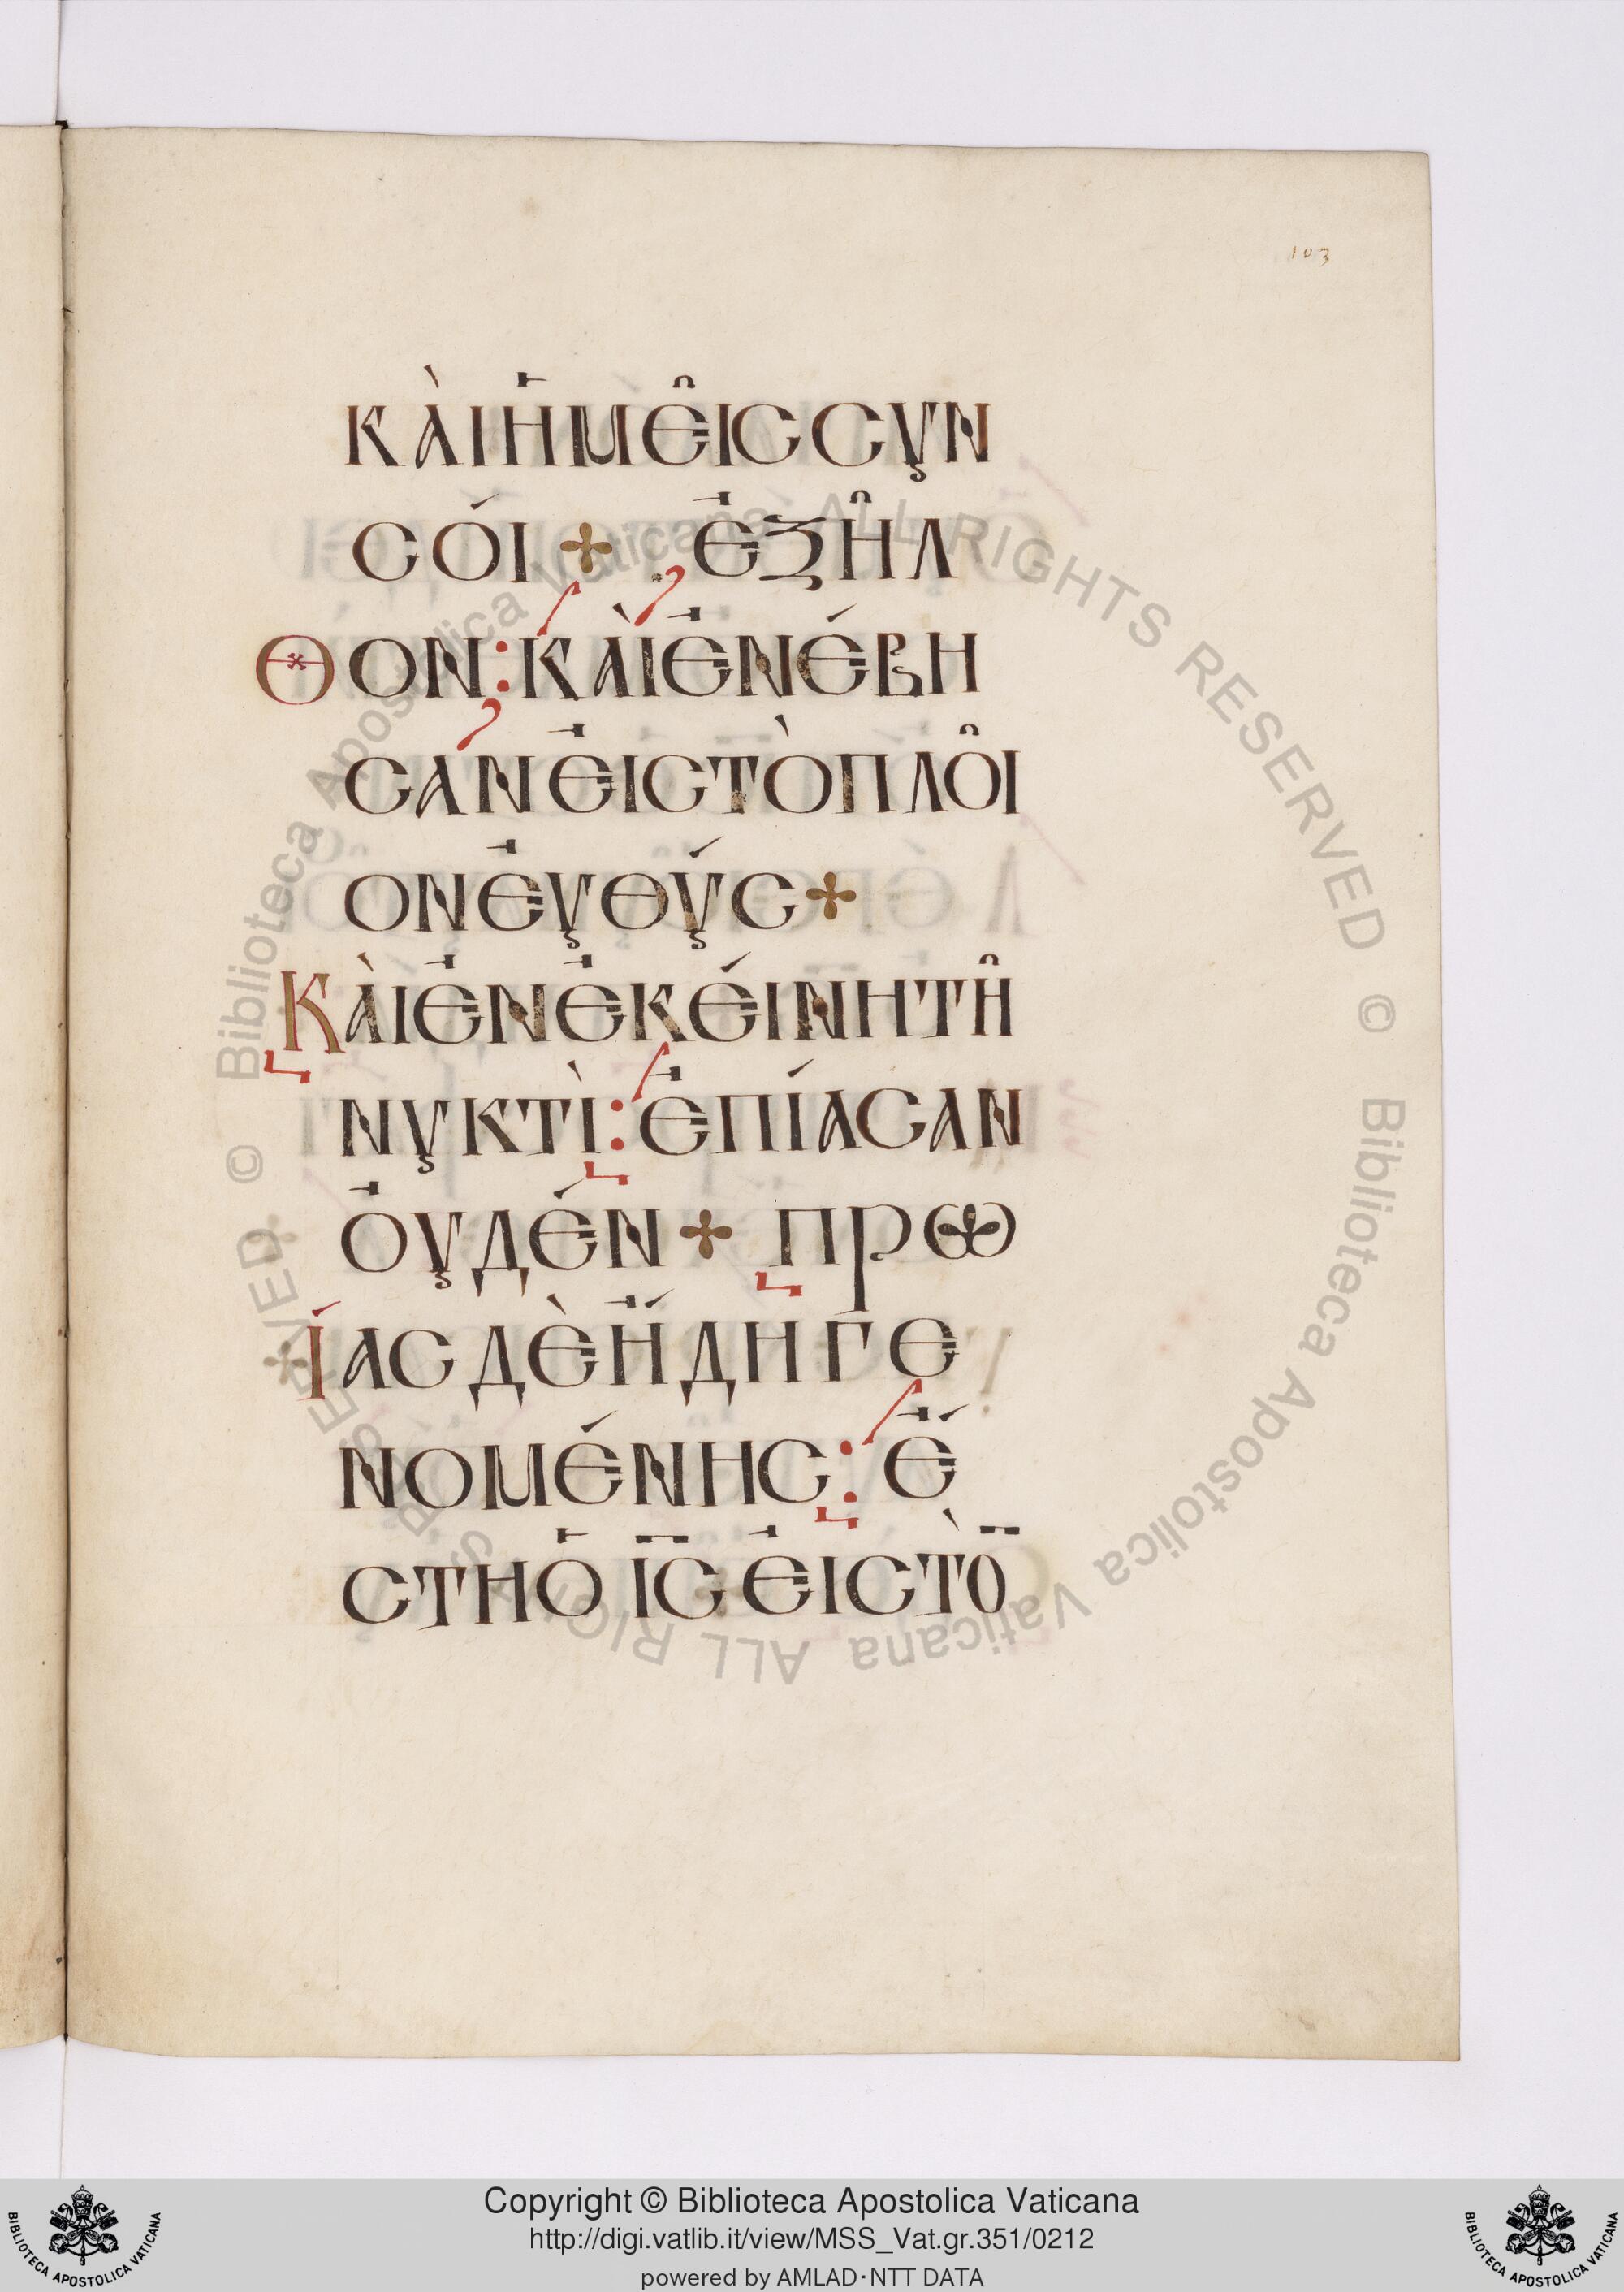 103
ΚᾺΙἩΜΕΙ͂ССΥΝ
СΌΙ ✢ ἘΞΗ͂Λ
ΘΟΝ: ΚΑῚἘΝΈΒΗ
СΑΝἘΙСΤῸΠΛΟΙ͂
ΟΝἘΥΘΎС ✢
ΚᾺΙἘΝἘΚΈΙΝΗΤΗ͂
ΝΥΚΤῚ: ἘΠΊΑСΑΝ
ὈΥΔΈΝ ✢ ΠΡΩ
ΊΑСΔῈἬΔΗΓΕ
ΝΟΜΈΝΗС: Ἔ
СΤΗὉ Ι̅С̅ ἘΙСΤῸ̅
© Biblioteca Apostolica Vaticana ALL RIGHTS RESERVED © Biblioteca Apostolica Vaticana ALL RIGHTS RESERVED
BIBLIOTECA APOSTOLICA VATICANA
Copyright © Biblioteca Apostolica Vaticana
http://digi.vatlib.it/view/MSS_Vat.gr.351/0212
powered by AMLAD·NTT DATA
BIBLIOTECA APOSTOLICA VATICANA